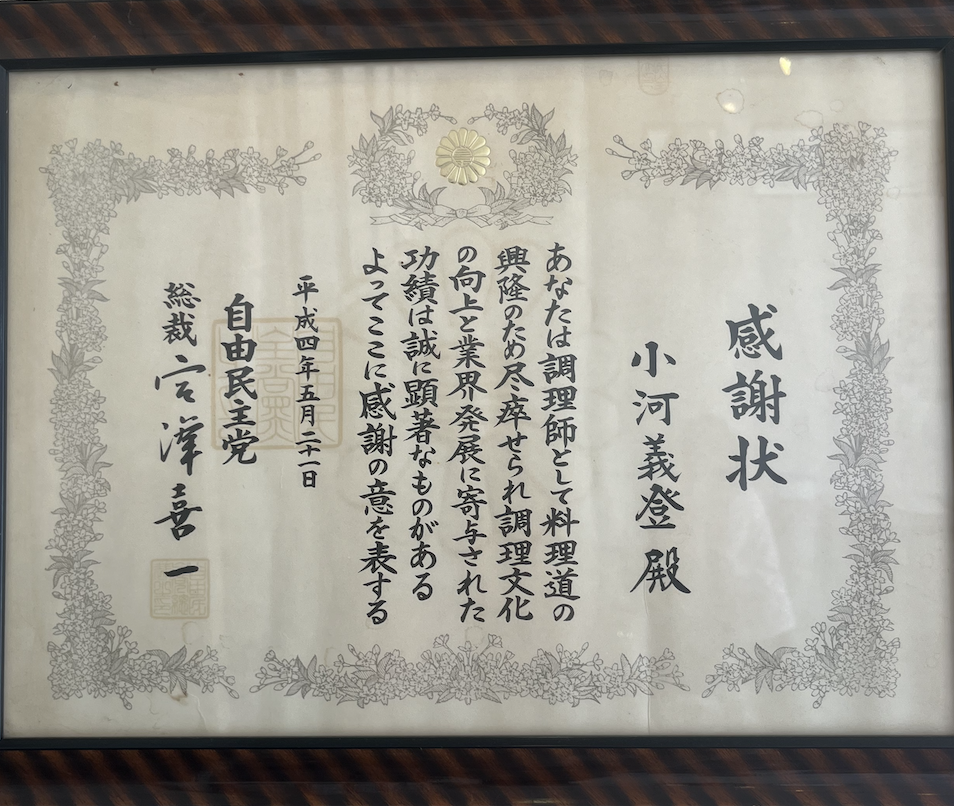 感謝状
小河義登殿
あなたは調理師として料理道の
興隆のため尽卒せられ調理文化
の向上と業界発展に寄与された
功績は誠に顕著なものがある
よってここに感謝の意を表する
平成四年五月二十一日
自由民主党
総裁 宮澤喜一